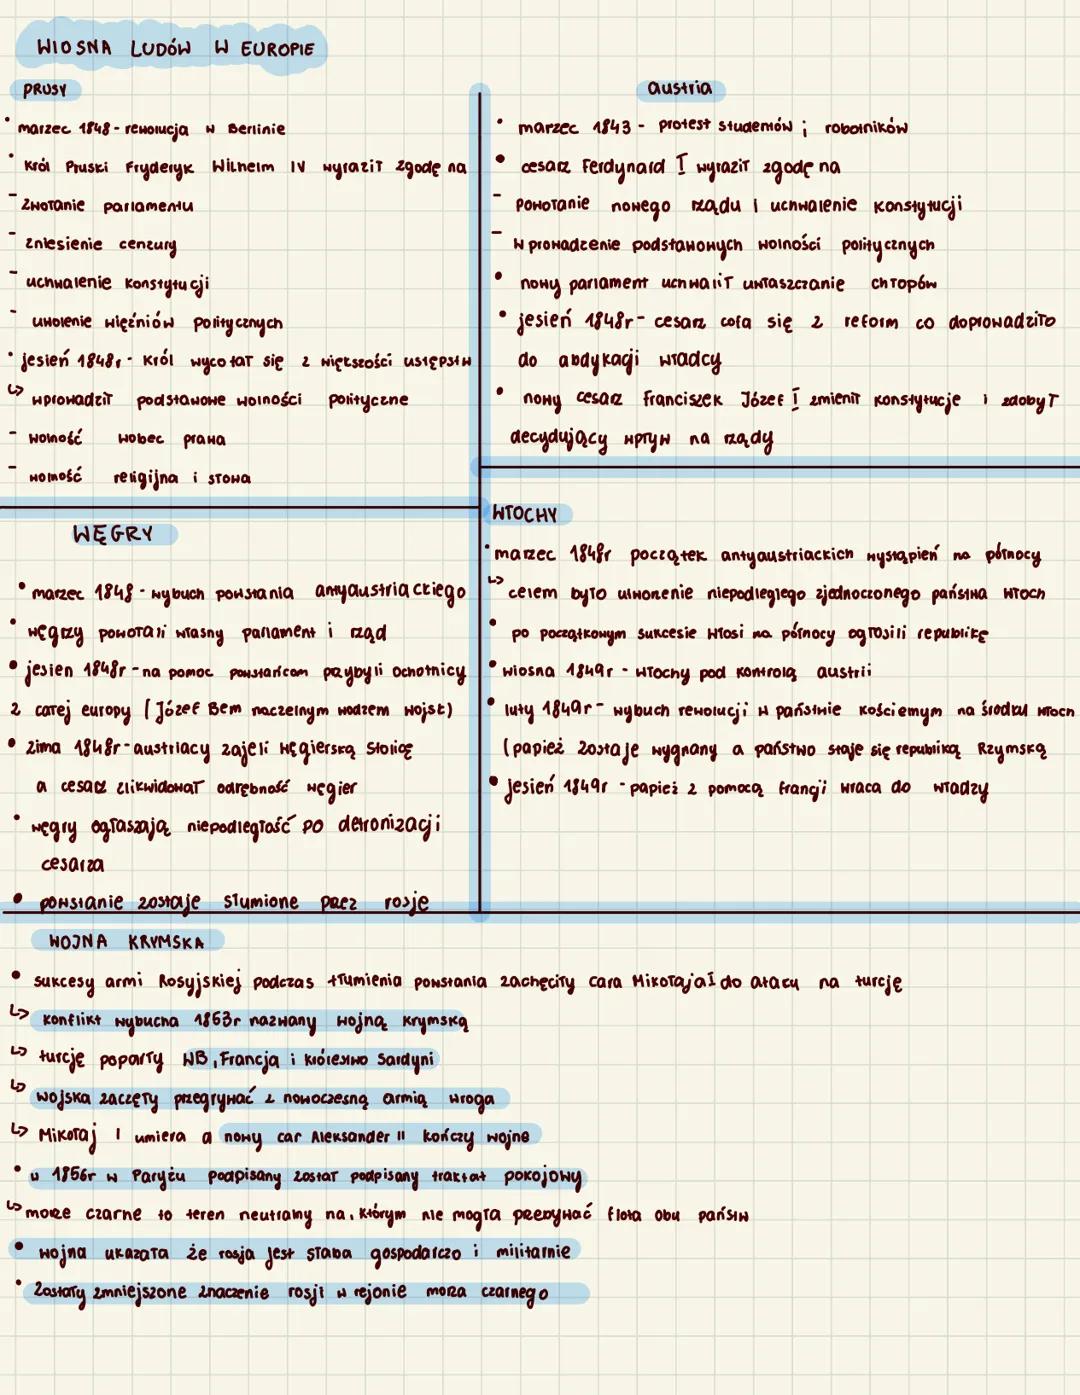 WIOSNA LUDÓW W EUROPIE
PRUSY
• marzec 1848 - rewolucja w Berlinie
• Król Pruski Fryderyk Wilhelm IV wyraził zgodę na
- zwołanie parlamentu
- zniesienie cenzury
- uchwalenie konstytucji
- uwolenie więźniów politycznych
• jesień 1848r - Król wycofał się z większości ustępstw
↳ wprowadził podstawowe wolności polityczne
- wolność wobec prawa
- wolność religijna i słowa
austria
• marzec 1843 - protest studentów i robotników
• cesarz Ferdynard I wyraził zgodę na
- powołanie nowego rządu i uchwalenie konstytucji
- wprowadzenie podstawowych wolności politycznych
• nowy parlament uchwalił uwłaszczanie chłopów
• jesień 1848r - cesarz cofa się z reform co doprowadziło
do abdykacji władcy
• nowy cesarz Franciszek Józef I zmienił konstytucje i zdobył
decydujący wpływ na rządy
WĘGRY
• marzec 1848 - wybuch powstania antyaustriackiego
• węgrzy powołali własny parlament i rząd
• jesien 1848r - na pomoc powstańcom przybyli ochotnicy
z całej europy (Józef Bem naczelnym wodzem wojsk)
• zima 1848r - austriacy zajeli węgierską stolicę
a cesarz zlikwidował odrębność węgier
• węgry ogłaszają niepodległość po detronizacji
cesarza
• powstanie zostaje stłumione przez rosję
WŁOCHY
• marzec 1848r początek antyaustriackich wystąpień na północy
↳ celem było utworzenie niepodległego zjednoczonego państwa włoch
• po początkowym sukcesie włosi na północy ogłosili republikę
• wiosna 1849r - włochy pod kontrolą austrii
• luty 1849r - wybuch rewolucji w państwie kościernym na środku włoch
(papież zostaje wygnany a państwo staje się republiką Rzymską
• jesień 1849r - papież z pomocą francji wraca do władzy
WOJNA KRYMSKA
• sukcesy armi Rosyjskiej podczas tłumienia powstania zachęciły cara Mikołaja I do ataku na turcję
↳ konflikt wybucha 1863r nazwany wojną krymską
↳ turcję poparły WB, Francja i królestwo Sardyni
↳ wojska zaczęły przegrywać z nowoczesną armią wroga
↳ Mikołaj I umiera a nowy car Aleksander II kończy wojne
• w 1856r w Paryżu podpisany został podpisany traktat pokojowy
↳ morze czarne to teren neutralny na, którym nie mogła przebywać flota obu państw
• wojna ukazała że rosja jest słaba gospodarczo i militarnie
• Zostały zmniejszone znaczenie rosji w rejonie morza czarnego